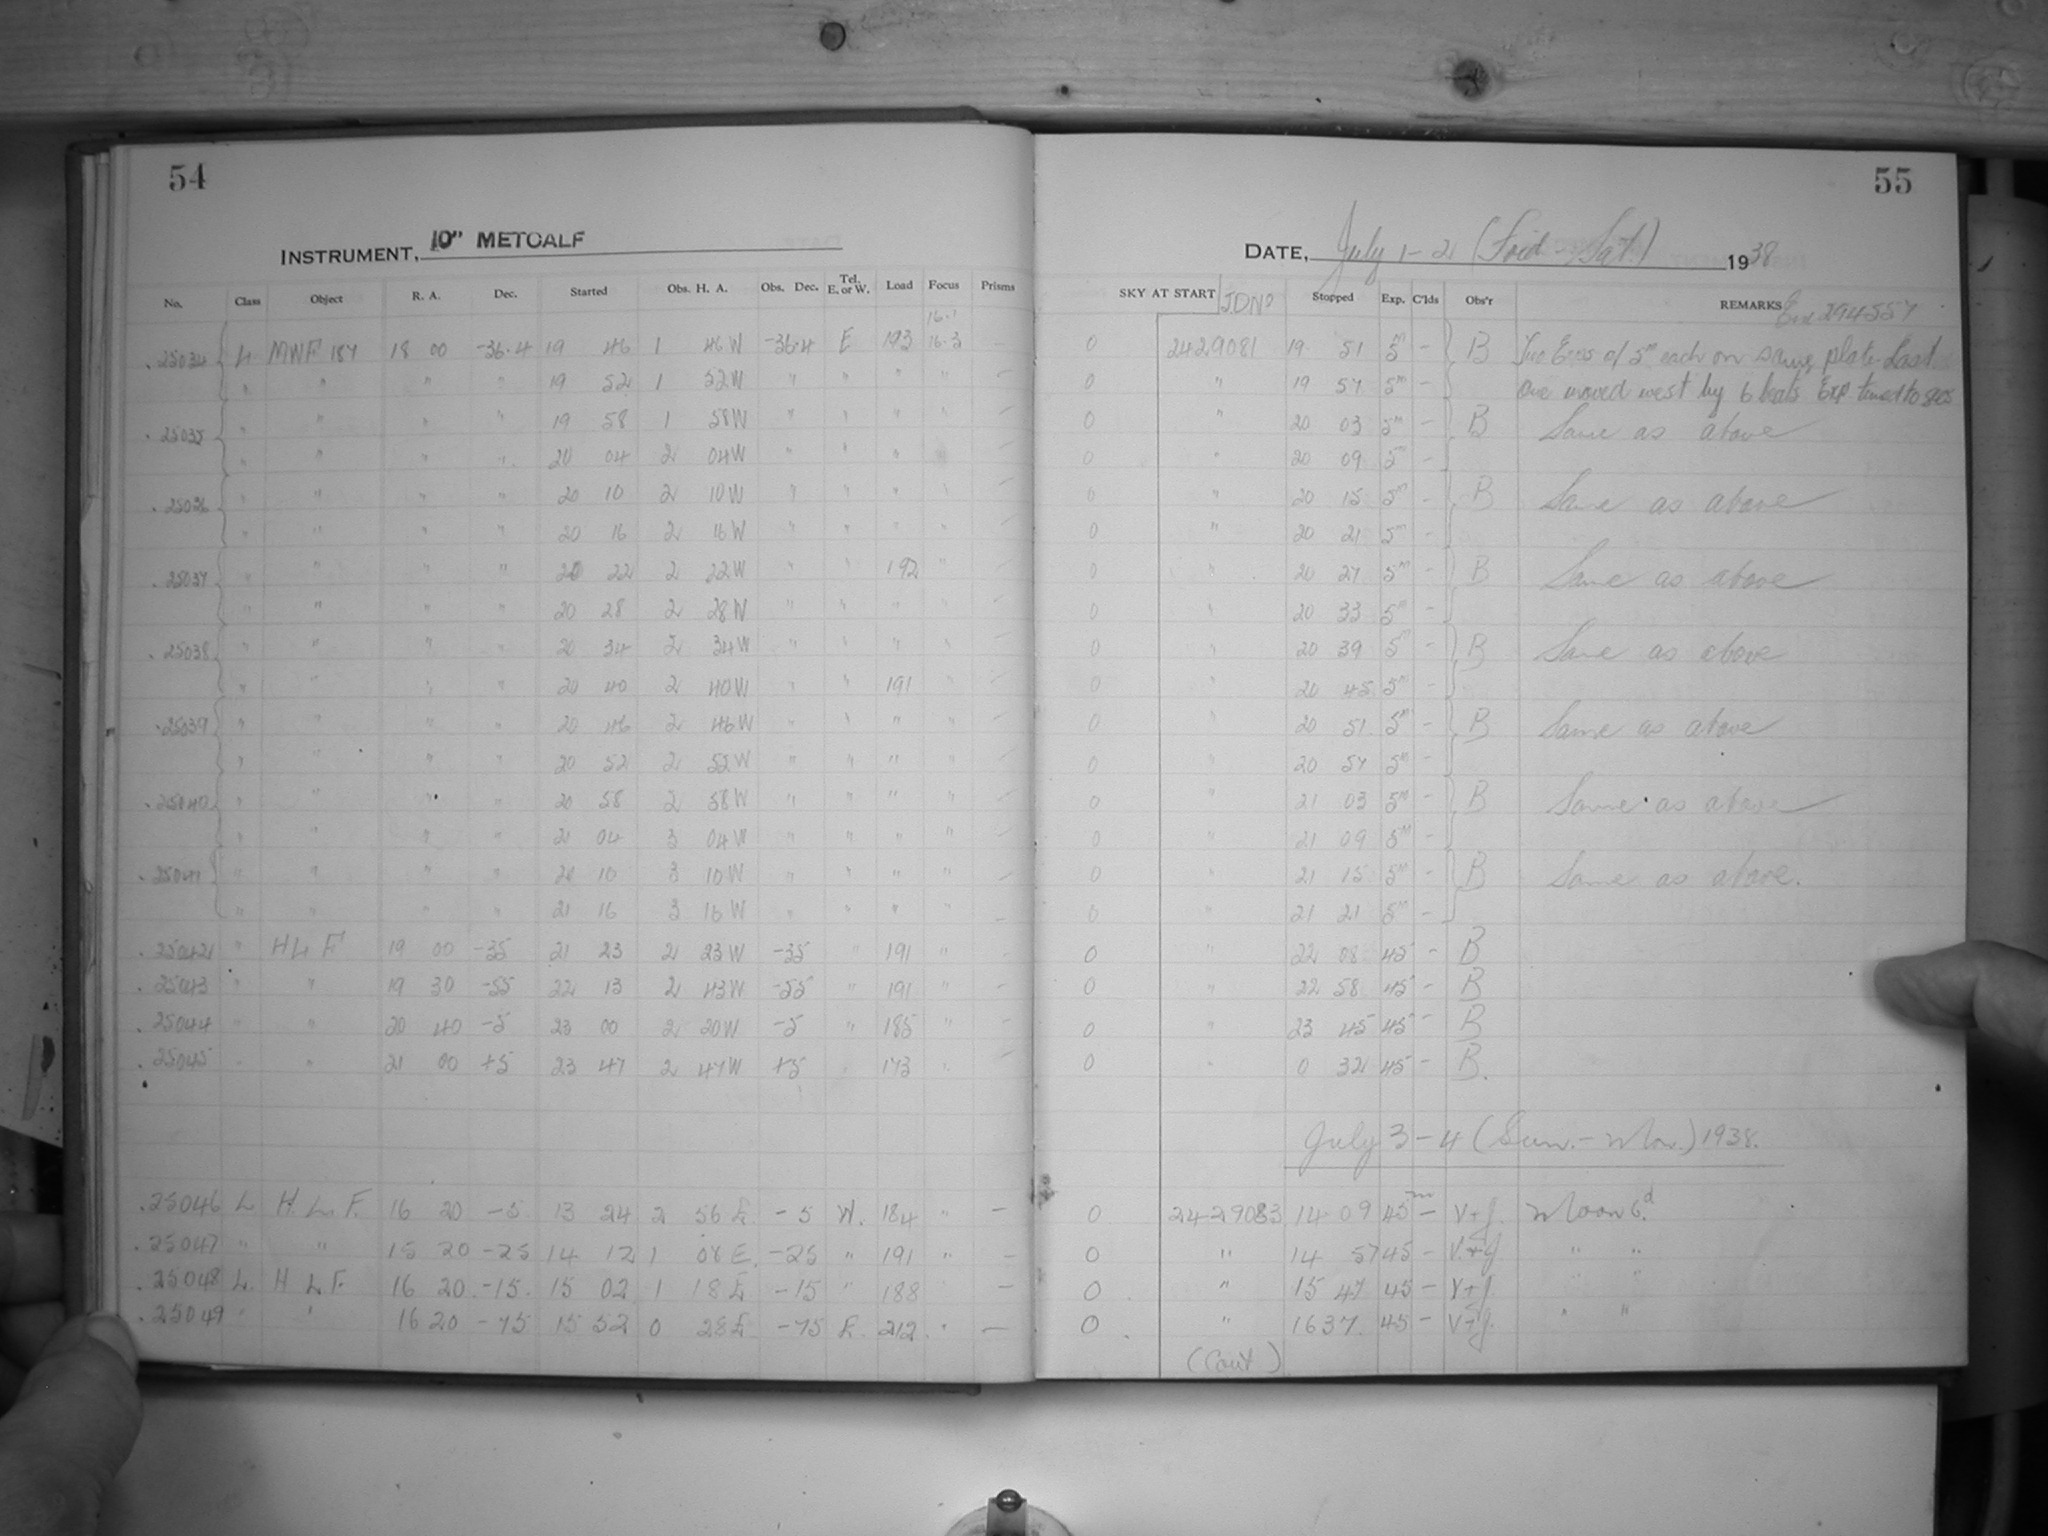 54
INSTRUMENT, 10" METCALF
No. Class Object R. A. Dec. Started Obs. H. A. Obs. Dec. Tel. E. or W. Load Focus Prisms
16.1
.25034 L MWF 187 18 00 -36.4 19 46 1 46W -36.4 E 193 16.3 -
" " " " 19 52 1 52W " " " " -
.25035 " " " " 19 58 1 58W " " " " -
" " " " 20 04 2 04W " " "
.25036 " " " " 20 10 2 10W " " " " -
" " " " 20 16 2 16W " " " " -
.25037 " " " " 20 22 2 22W " " 192 " -
" " " " 20 28 2 28W " " " " -
.25038 " " " " 20 34 2 34W " " " " -
" " " " 20 40 2 40W " " 191 " -
.25039 " " " " 20 46 2 46W " " " " -
" " " " 20 52 2 52W " " " " -
.25040 " " " " 20 58 2 58W " " " " -
" " " " 21 04 3 04W " " " " -
.25041 " " " " 21 10 3 10W " " " " -
" " " " 21 16 3 16W " " " " -
.25042 " H L F 19 00 -35 21 23 2 23W -35 " 191 " -
.25043 " " 19 30 -55 22 13 2 43W -55 " 191 " -
.25044 " " 20 40 -5 23 00 2 20W -5 " 185 " -
.25045 " " 21 00 +5 23 47 2 47W +5 " 173 " -
.25046 L H. L. F. 16 20 -5 13 24 2 56 E. -5 W. 184 " -
.25047 " " 15 20 -25 14 12 1 08 E. -25 " 191 " -
.25048 L. H L F. 16 20 -15. 15 02 1 18 E -15 " 188 -
.25049 " " 16 20 -75 15 52 0 28 E -75 E. 212 " -
55
DATE, July 1-2 (Frid - Sat) 1938
SKY AT START J.D.No Stopped Exp. C'lds Obs'r REMARKS
0 2429081 19 51 5m - B Two Exps of 5m each on same plate Last
0 " 19 57 5m - one moved west by 6 beats Exp. timed to secs
0 " 20 03 5m - B Same as above
0 " 20 09 5m -
0 " 20 15 5m - B Same as above
0 " 20 21 5m -
0 " 20 27 5m - B Same as above
0 " 20 33 5m -
0 " 20 39 5m - B Same as above
0 " 20 45 5m -
0 " 20 51 5m - B Same as above
0 " 20 57 5m -
0 " 21 03 5m - B Same as above
0 " 21 09 5m -
0 " 21 15 5m - B Same as above.
0 " 21 21 5m -
0 " 22 08 45 - B
0 " 22 58 45 - B
0 " 23 45 45 - B
0 " 0 32 45 - B.
July 3-4 (Sun. - Mon.) 1938.
0 2429083 14 09 45m - V+J. Moon 6.d
0 " 14 57 45 - V+J " "
0 " 15 47 45 - V+J " "
0 " 16 37. 45 - V+J. " "
(Cont)